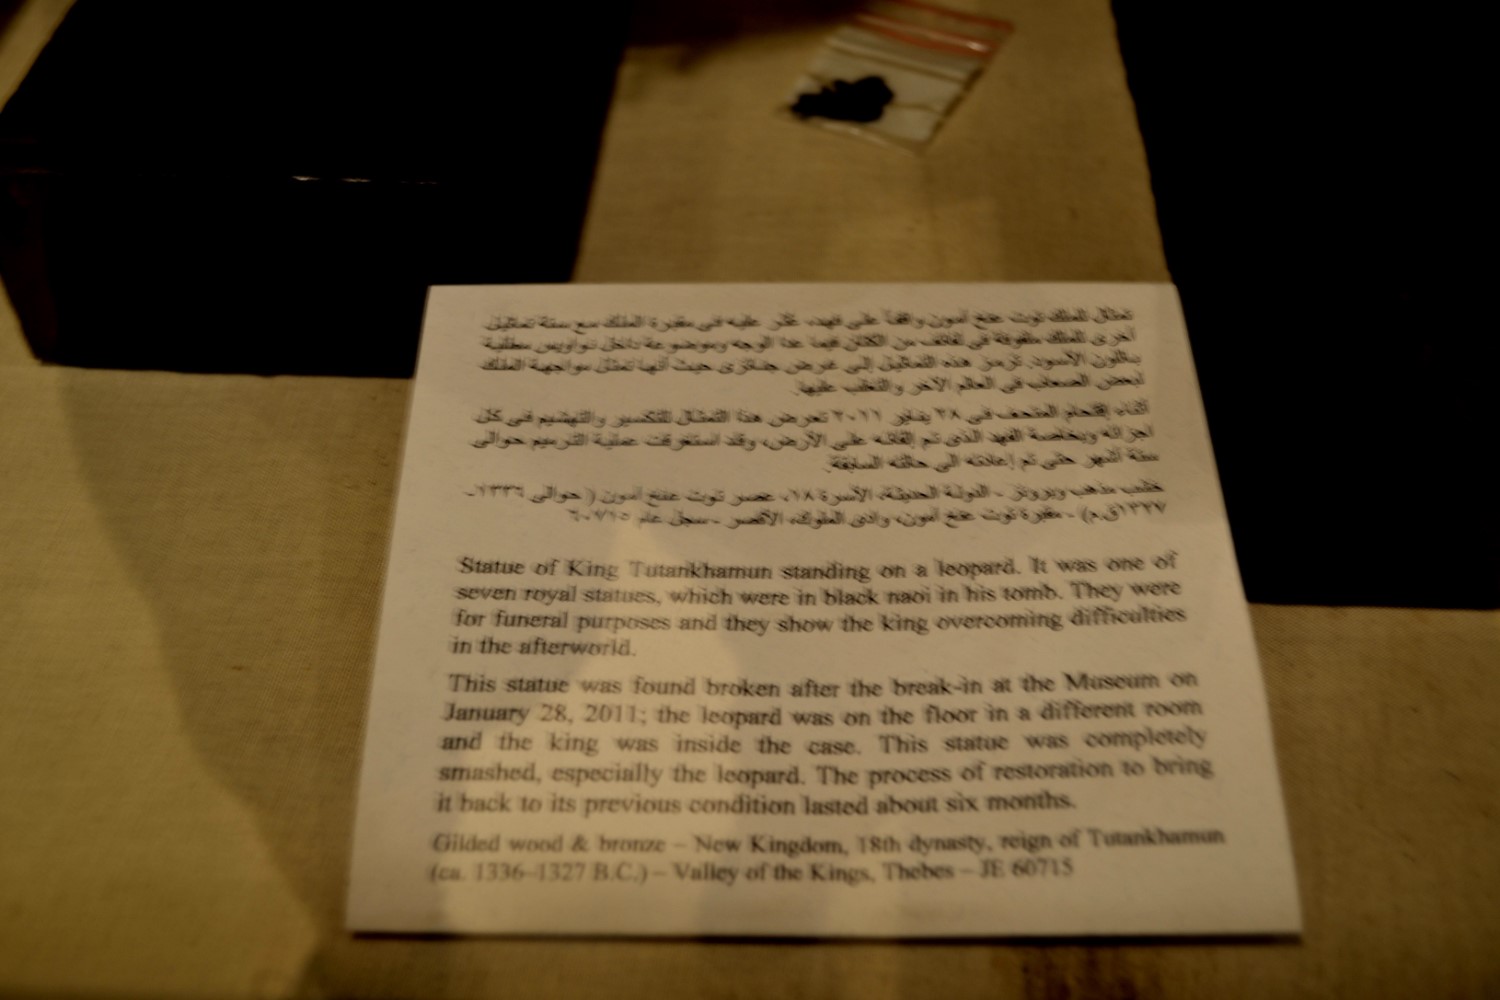 تمثال للملك توت عنخ آمون واقفاً على فهد، عثر عليه فى مقبرة الملك مع ستة تماثيل
أخرى للملك ملفوفة فى لفائف من الكتان فيما عدا الوجه وموضوعة داخل نواويس مطلية
باللون الأسود. ترمز هذه التماثيل إلى غرض جنائزى حيث أنها تمثل مواجهة الملك
لبعض الصعاب فى العالم الآخر والتغلب عليها.
أثناء إقتحام المتحف فى ٢٨ يناير ٢٠١١ تعرض هذا التمثال للتكسير والتهشيم فى كل
اجزائه وبخاصة الفهد الذى تم إلقائه على الأرض، وقد استغرقت عملية الترميم حوالى
ستة أشهر حتى تم إعادته الى حالته السابقة.
خشب مذهب وبرونز - الدولة الحديثة، الأسرة ١٨، عصر توت عنخ آمون ( حوالى ١٣٣٦-
١٣٢٧ق.م) - مقبرة توت عنخ آمون، وادى الملوك، الأقصر - سجل عام ٦٠٧١٥
Statue of King Tutankhamun standing on a leopard. It was one of
seven royal statues, which were in black naoi in his tomb. They were
for funeral purposes and they show the king overcoming difficulties
in the afterworld.
This statue was found broken after the break-in at the Museum on
January 28, 2011; the leopard was on the floor in a different room
and the king was inside the case. This statue was completely
smashed, especially the leopard. The process of restoration to bring
it back to its previous condition lasted about six months.
Gilded wood & bronze – New Kingdom, 18th dynasty, reign of Tutankhamun
(ca. 1336–1327 B.C.) – Valley of the Kings, Thebes – JE 60715